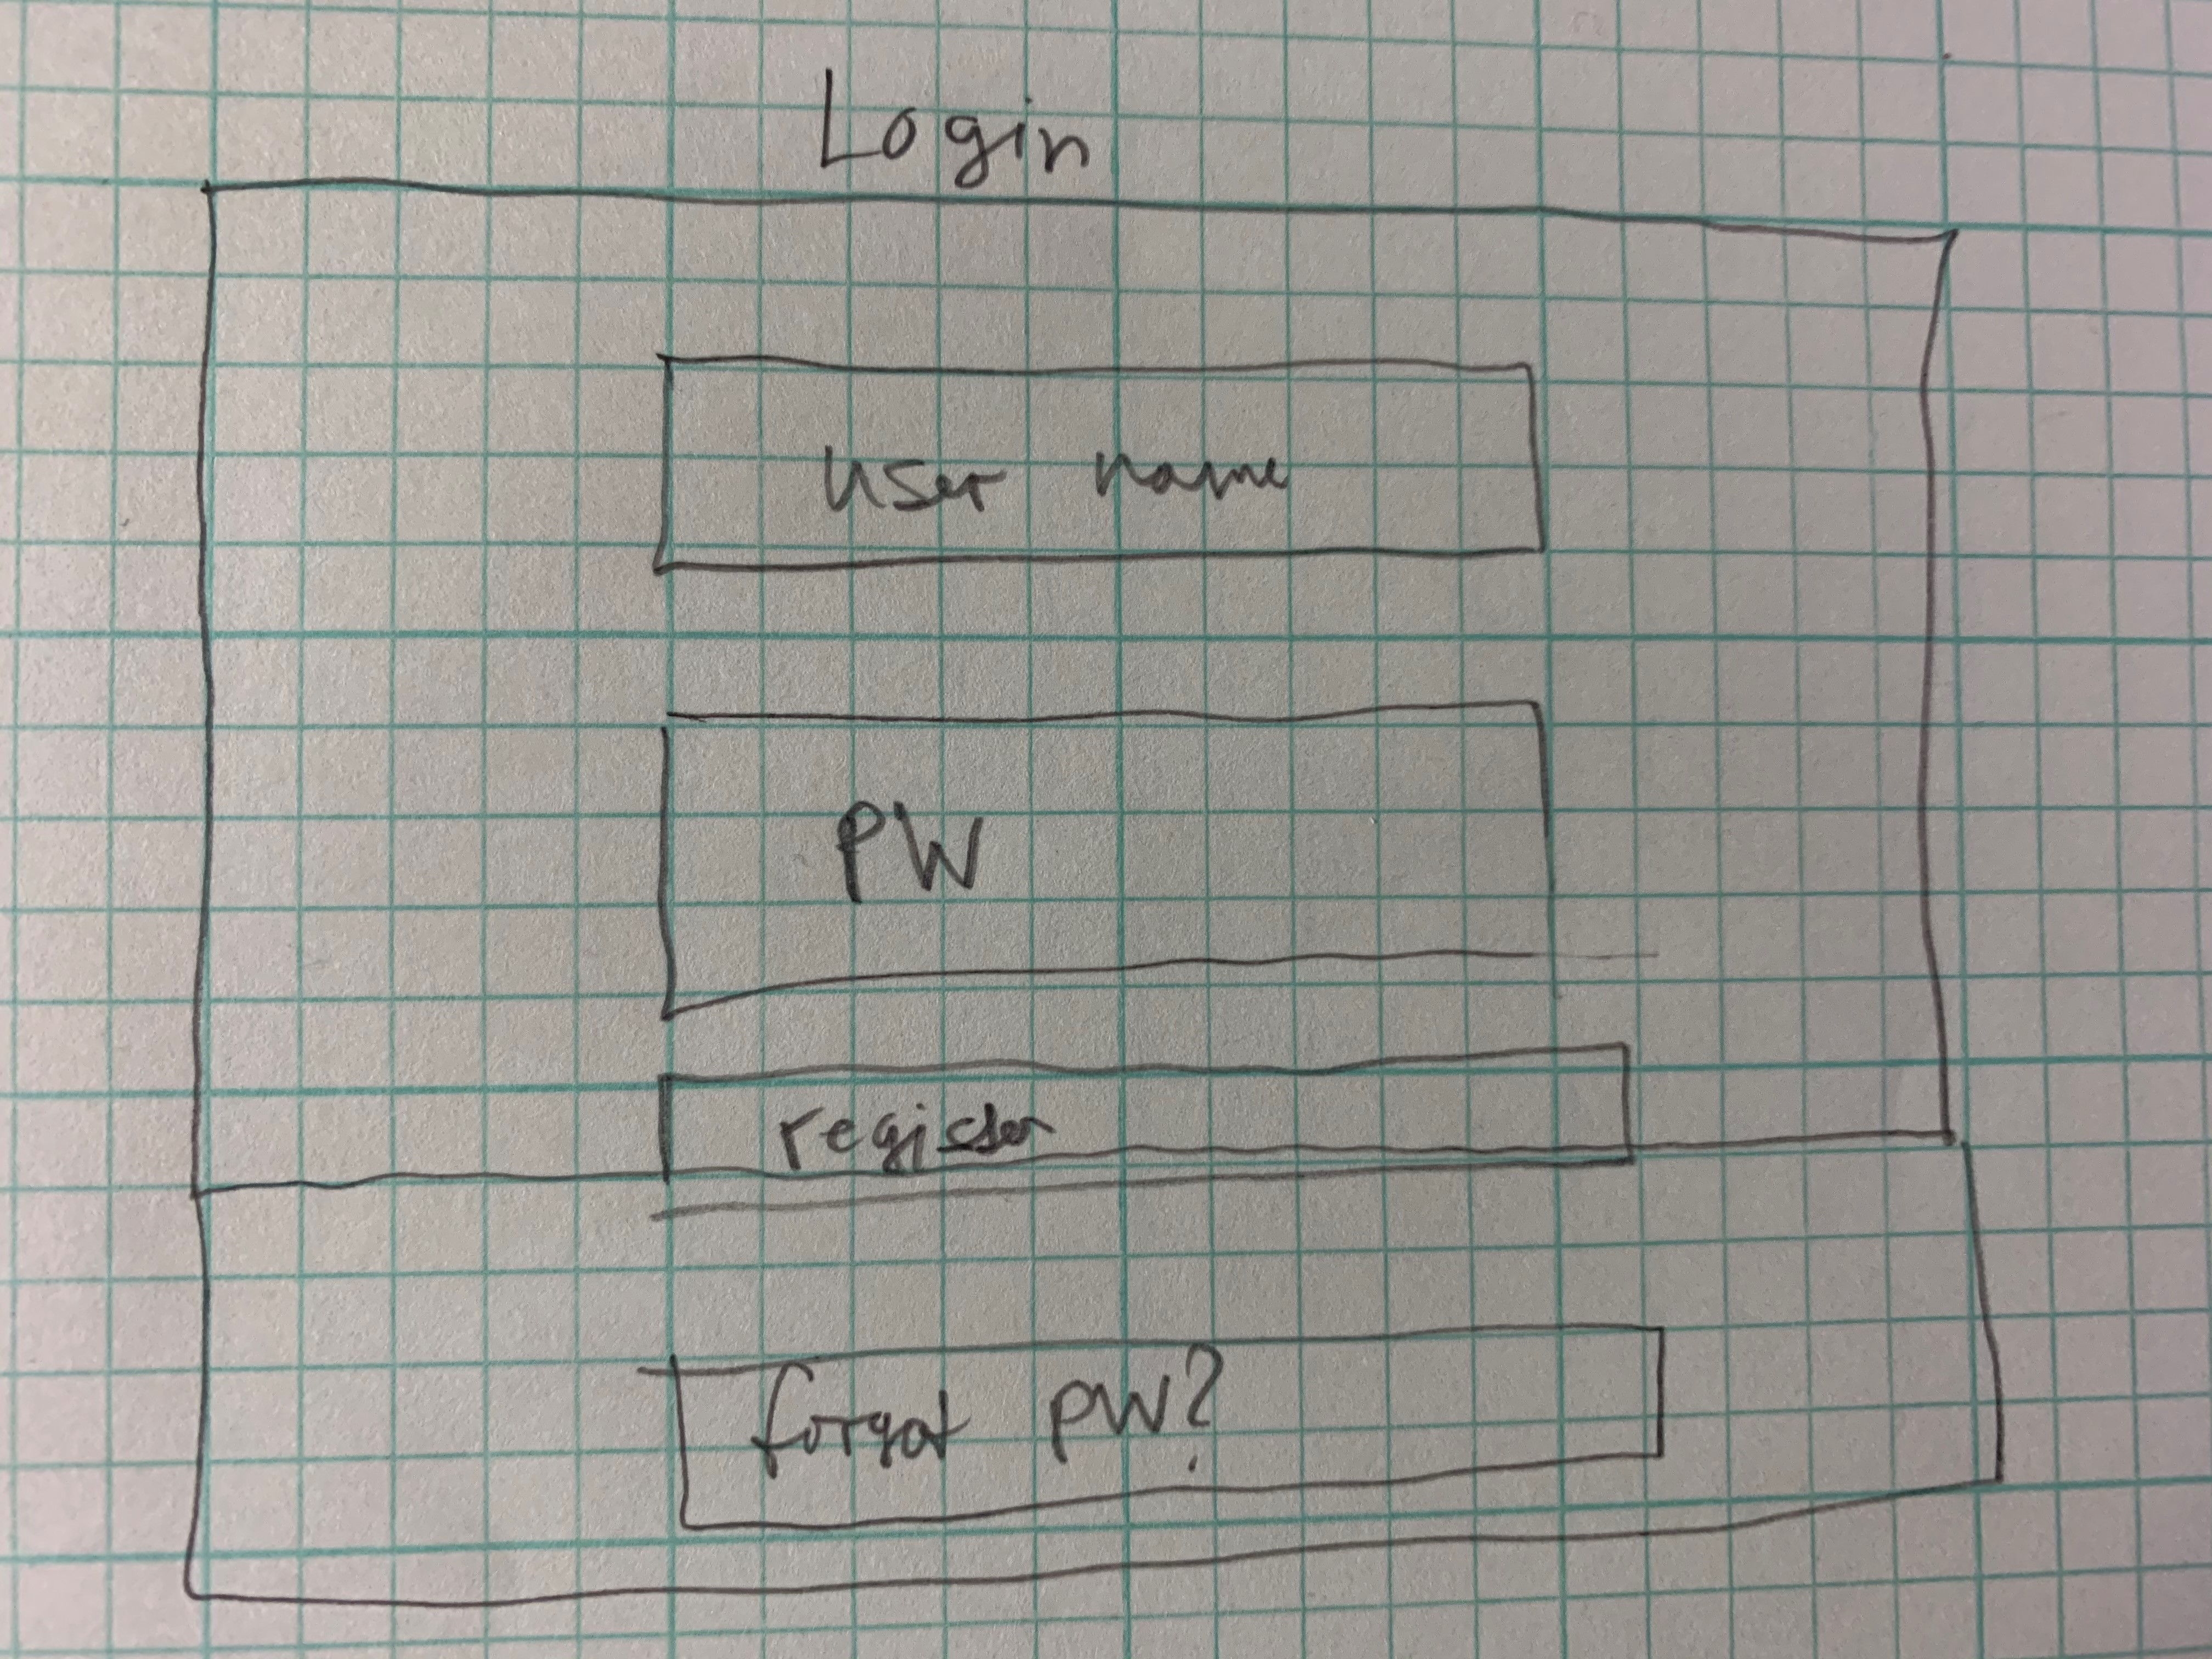 Login
user name
PW
register
forgot PW?